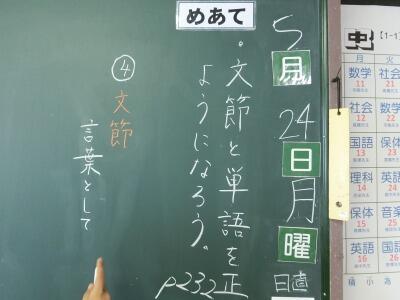 めあて
5月24日月曜
日直
。文節と単語を正
ようになろう。
p232
④
文節
言葉として
【1-1】
月 火
数学 社会
11 21
社会 数学
12 22
国語 保体
13 23
理科 英語
14 24
保体 音楽
15 25
英語 国語
16 26
積小為